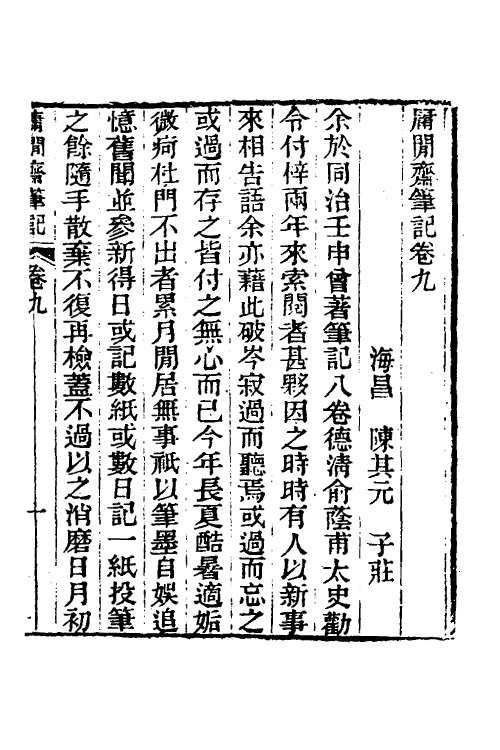 庸閒齋筆記卷九
海昌　陳其元　子莊
余於同治壬申曾著筆記八卷德清俞蔭甫太史勸
令付梓兩年來索閱者甚夥因之時時有人以新事
來相告語余亦藉此破岑寂過而聽焉或過而忘之
或過而存之皆付之無心而已今年長夏酷暑適姤
微疴杜門不出者累月閒居無事祇以筆墨自娛追
憶舊聞並參新得日或記數紙或數日記一紙投筆
之餘隨手散棄不復再檢蓋不過以之消磨日月初
庸閒齋筆記　卷九　一